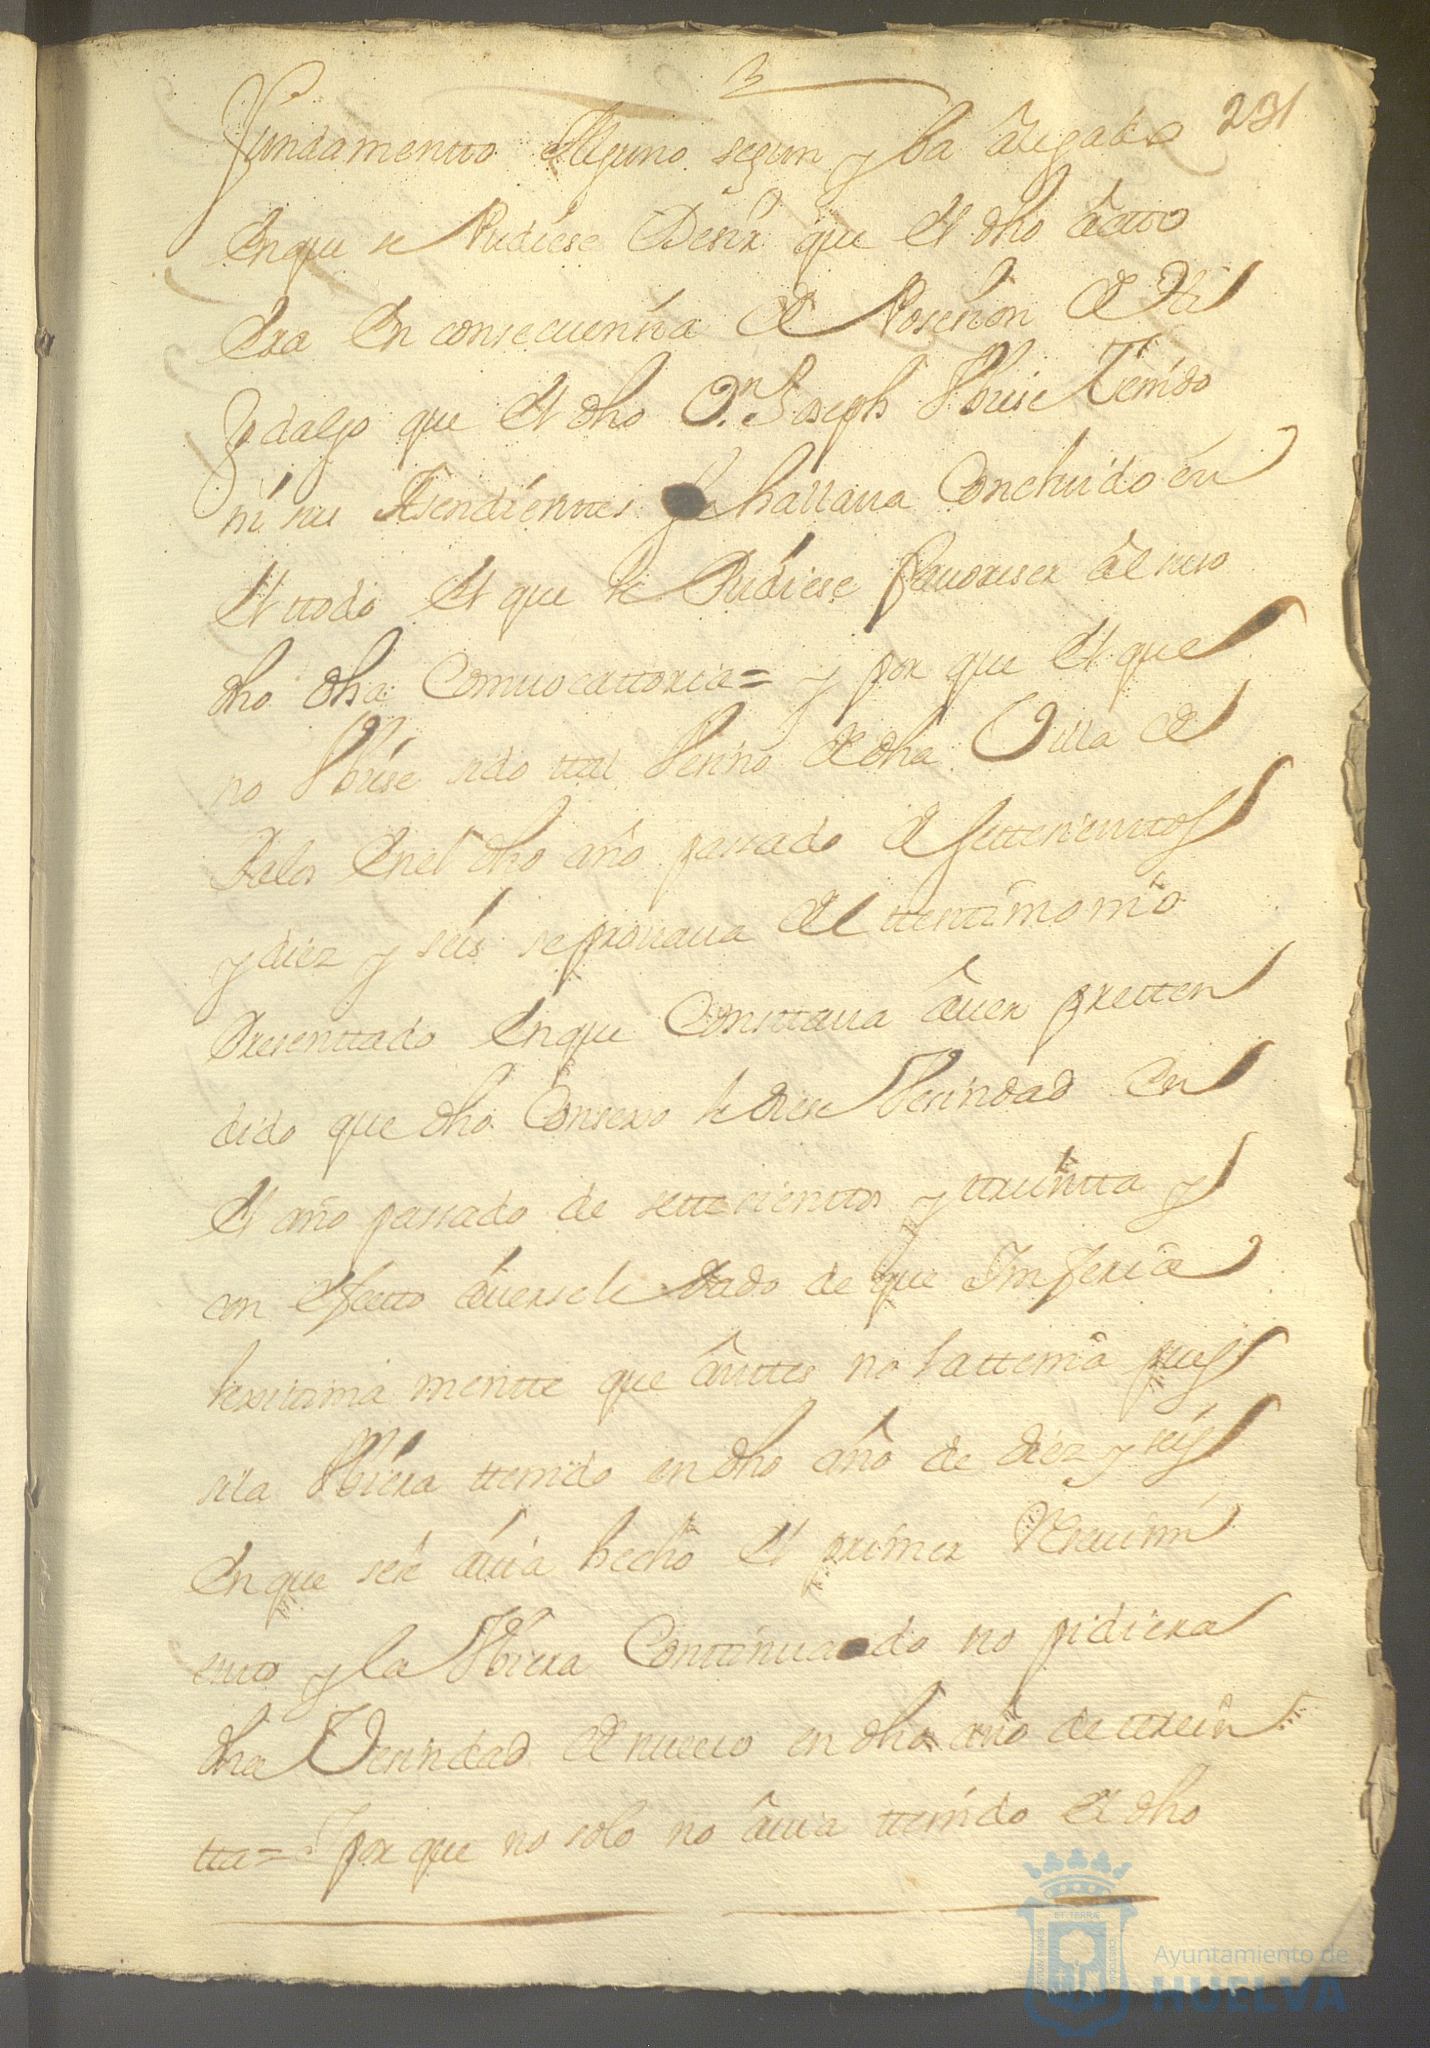 231
fundamentto Alguno segun y ba alegado
En que se Pudiese Desir que El dho actto
Era En consecuensia de Posesion de Hi
jodalgo que El dho Dn Joseph Vbiese Tenido
ni sus Asendienttes se hallaua Concluido en
El ttodo El que se Pudiese fauoreser al suso
dho dha Comuocattoria = y por que El que
no Vbiese sido ttal Vesino de dha Villa de
Palos En el dho año passado de settesienttos
y diez y seis se prouaua del ttesttimonio
Presenttado En que Consttaua auer pretten
dido que dho Consexo le diese Vesindad En
El año passado de settesienttos y ttreintta y
con Efectto auersele dado de que Inferia
lexittima mentte que anttes no la ttenia pues
si la Vbiera ttenido en dho año de diez y seis
En que se le auia hecho El primer Reseuimi
entto y la Vbiera Conttinuado no pidiera
dha Vesindad de nueuo en dho año de ttrein
tta = Y por que no solo no auia ttenido El dho
Ayuntamiento de
HUELVA